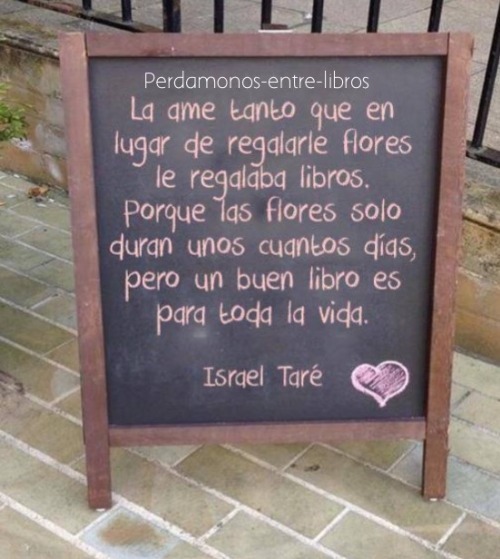 Perdamonos-entre-libros
La ame tanto que en
lugar de regalarle flores
le regalaba libros.
Porque las flores solo
duran unos cuantos días,
pero un buen libro es
para toda la vida.
Israel Taré